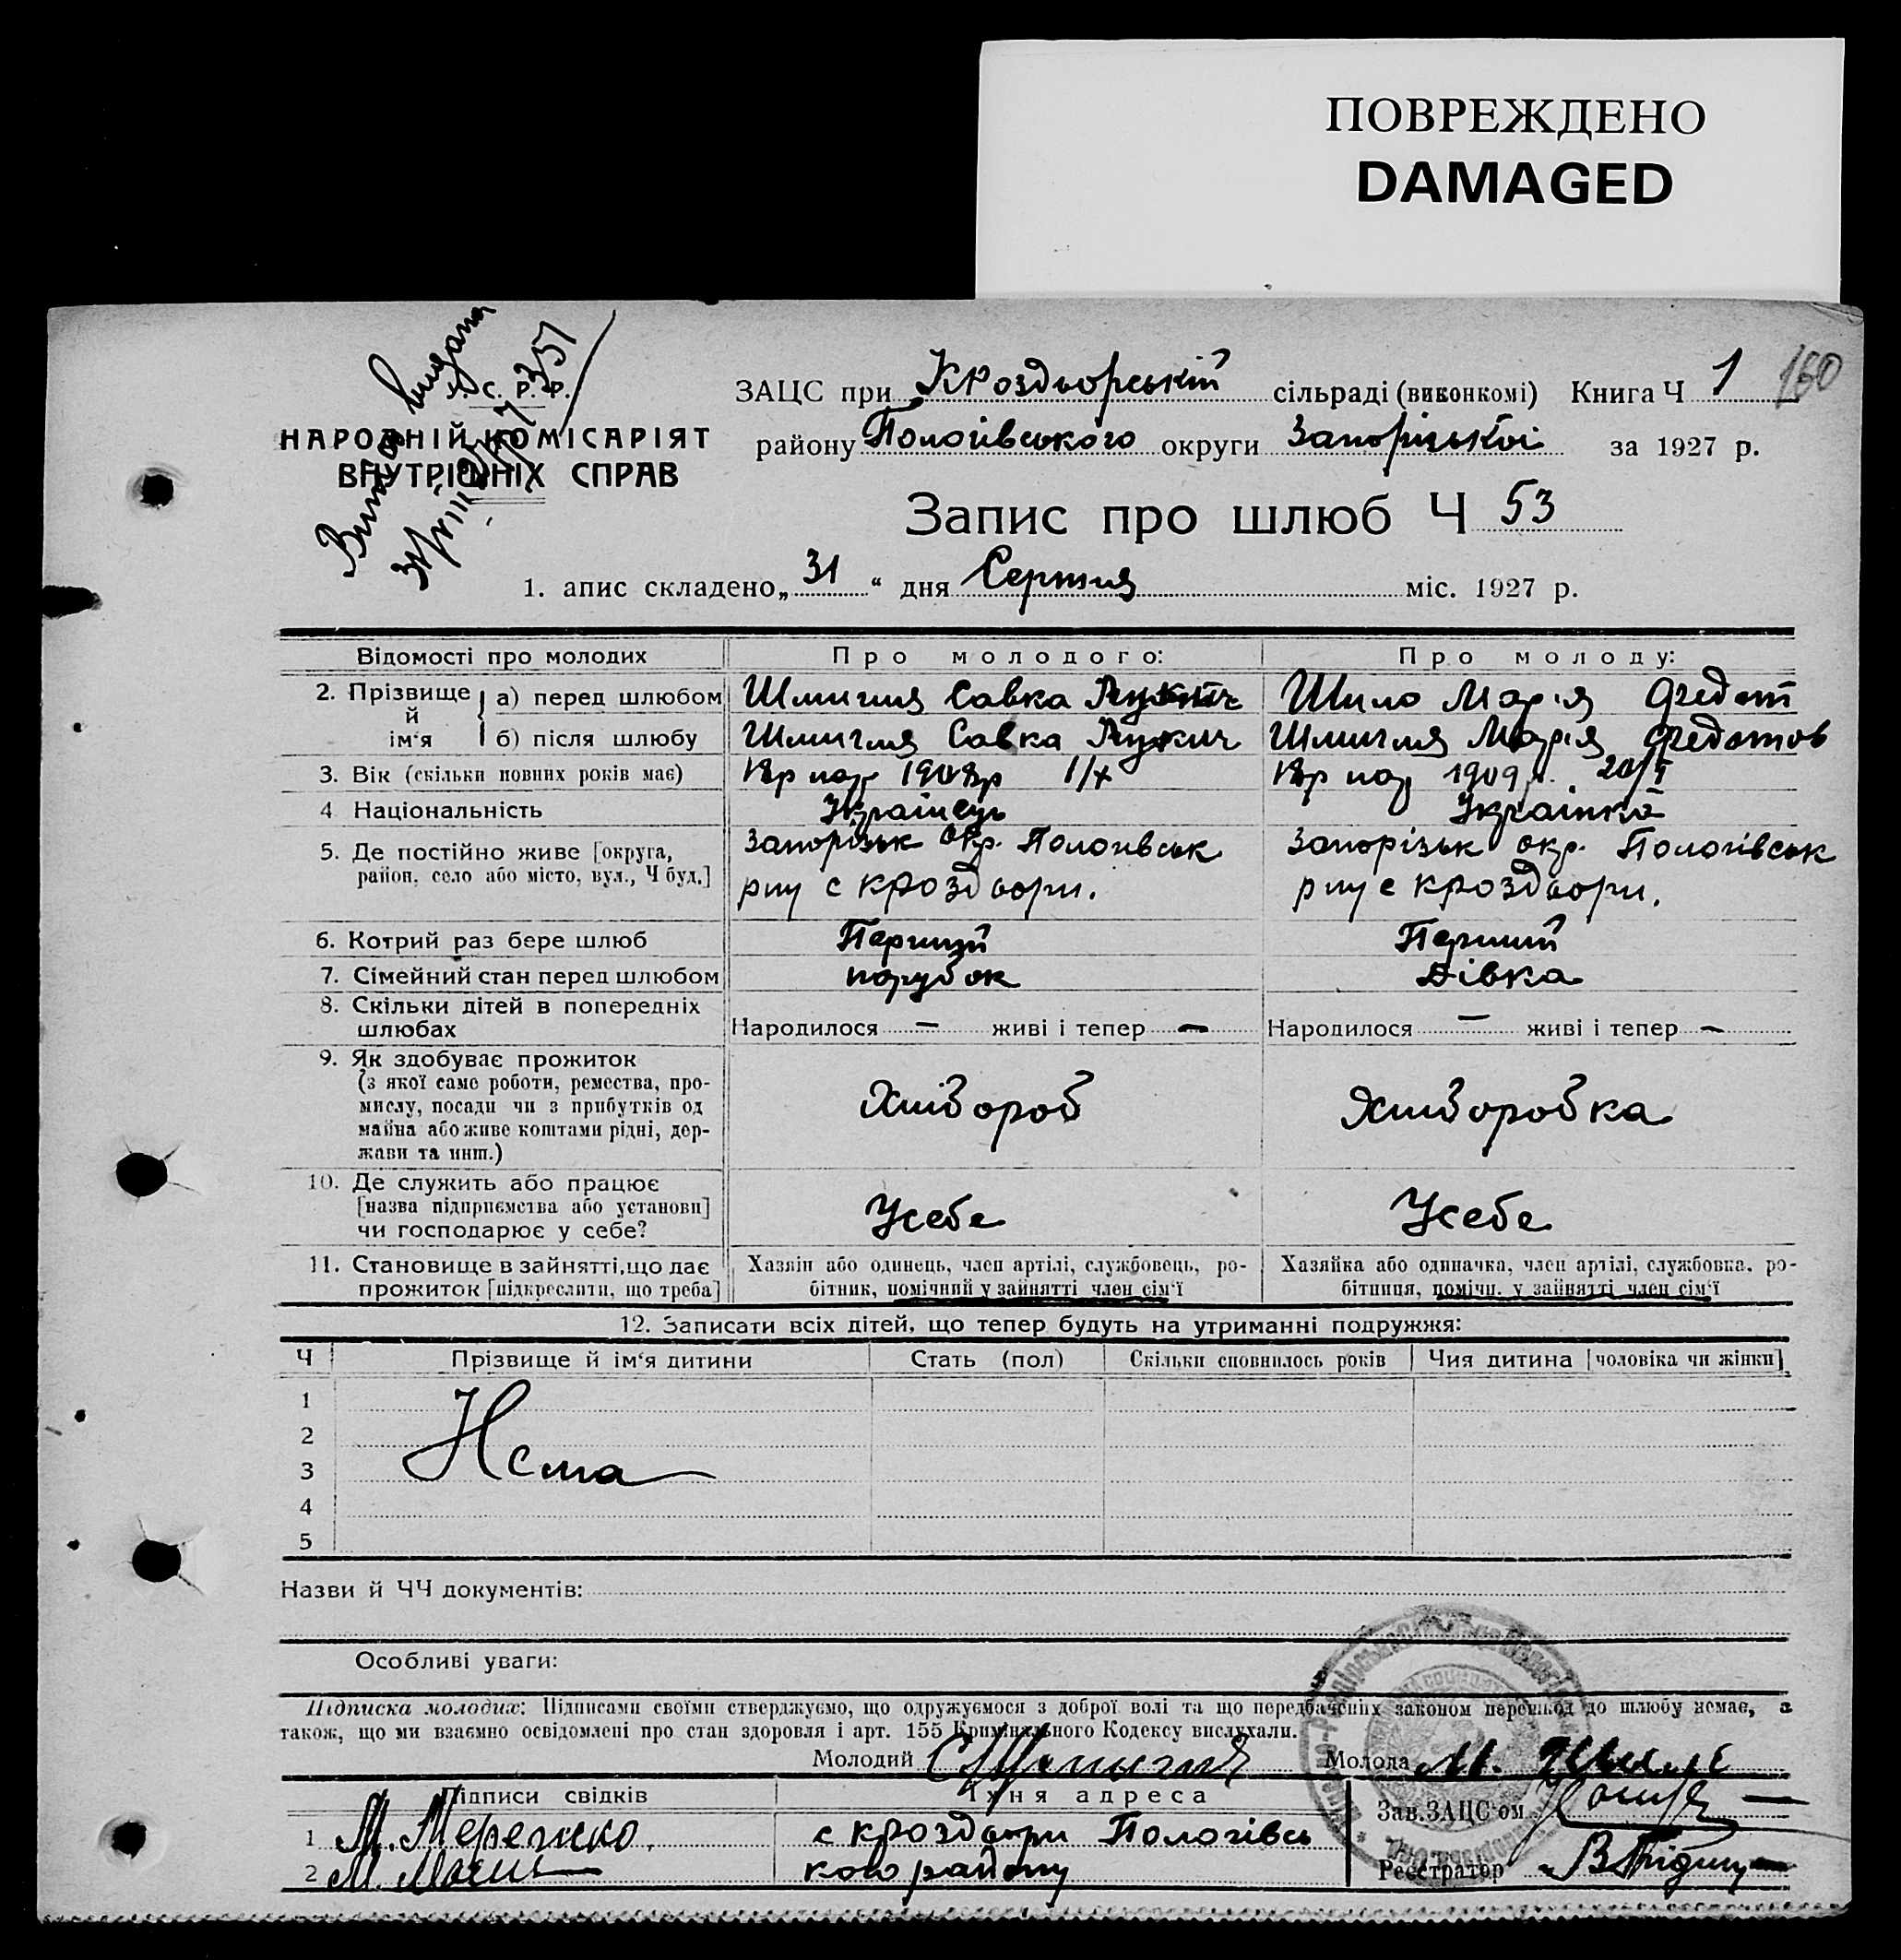 ПОВРЕЖДЕНО
DAMAGED
У. С. Р. Р.
НАРОДНІЙ КОМІСАРІЯТ
ВНУТРІШНІХ СПРАВ
ЗАЦС при Кроздворській сільраді (виконкомі) Книга Ч 1 160
району Пологівського округи Запорізької за 1927 р.
Запис про шлюб Ч 53
1. апис складено „31“ дня Серпня міс. 1927 р.
Відомості про молодих Про молодого: Про молоду:
2. Прізвище й ім‘я а) перед шлюбом Шмигля Савка Шило Марія Федот
б) після шлюбу Шмигля Савка Шмигля Марія Федотов
3. Вік (скільки повних років має) 1908р 1/X 1909р. 20/I
4 Національність Українець Українка
5. Де постійно живе [округа, Запорізьк окр. Пологівськ Запорізьк окр. Пологівськ
район, село або місто, вул., Ч буд.] рну с Кроздвори. рну с Кроздвори.
6. Котрий раз бере шлюб Перший Перший
7. Сімейний стан перед шлюбом парубок Дівка
8. Скільки дітей в попередніх
шлюбах Народилося — живі і тепер — Народилося — живі і тепер —
9. Як здобуває прожиток
(з якої саме роботи, ремества, про-
мислу, посади чи з прибутків од Хлібороб Хліборобка
майна або живе коштами рідні, дер-
жави та инш.)
10. Де служить або працює
[назва підприємства або установи] Усебе Усебе
чи господарює у себе?
11. Становище в зайнятті, що дає Хазяїн або одинець, член артілі, службовець, ро- Хазяйка або одиначка, член артілі, службовка, ро-
прожиток [підкреслити, що треба] бітник, помічний у зайнятті член сім‘ї бітниця, помічн. у зайнятті член сім‘ї
12. Записати всіх дітей, що тепер будуть на утриманні подружжя:
Ч Прізвище й ім‘я дитини Стать (пол) Скільки сповнилось років Чия дитина [чоловіка чи жінки]
1
2
3 Нема
4
5
Назви й ЧЧ документів:
Особливі уваги:
Підписка молодих: Підписами своїми стверджуємо, що одружуємося з доброї волі та що передбачених законом перешкод до шлюбу немає, а
також, що ми взаємно освідомлені про стан здоров‘я і арт. 155 Кримінального Кодексу вислухали.
Молодий С Шмигля Молода М. Шило
Підписи свідків Їхня адреса Зав. ЗАЦС‘ом
1 М. с Кроздвори Пологівсь
2 М. кого району Реєстратор